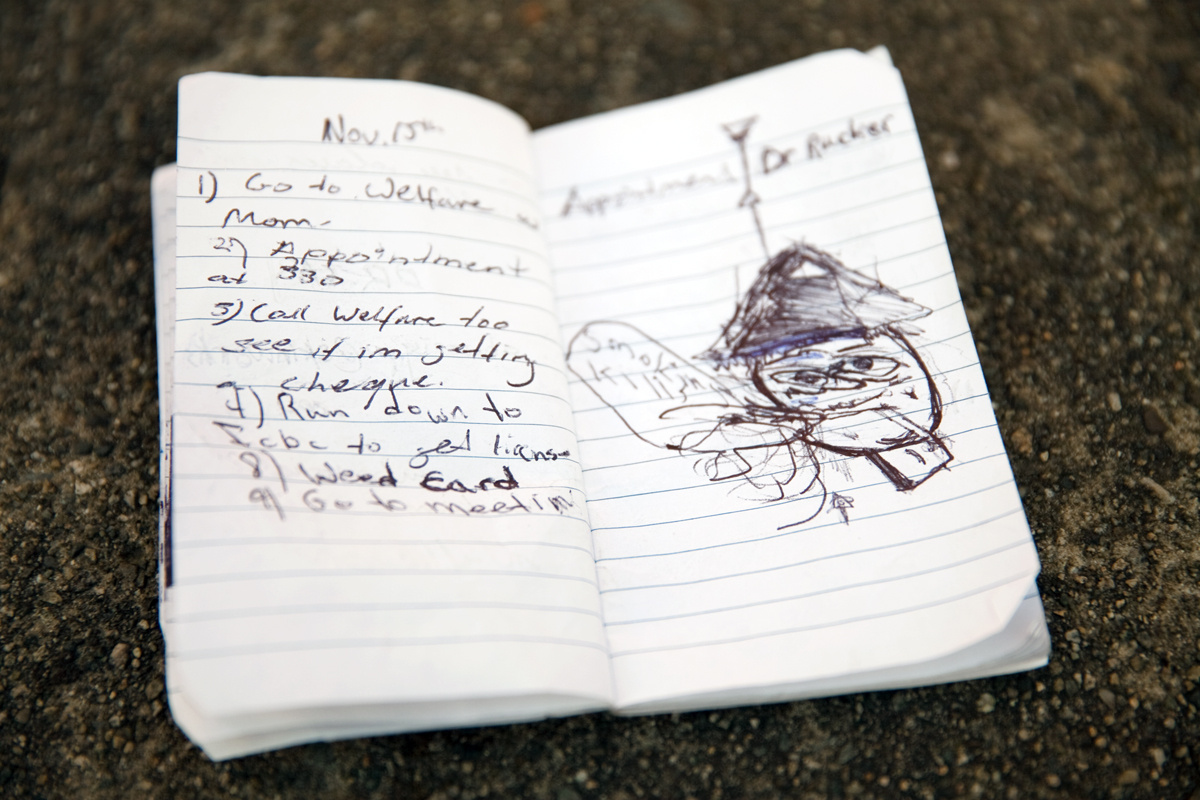 Nov. 15th
1) Go to Welfare
Mom-
2) Appointment
at 330
3) Call Welfare too
see if im getting
a cheque.
4) Run down to
Icbc to get license
8) Weed Card
9) Go to meetin
Dr Rucker
Appointment